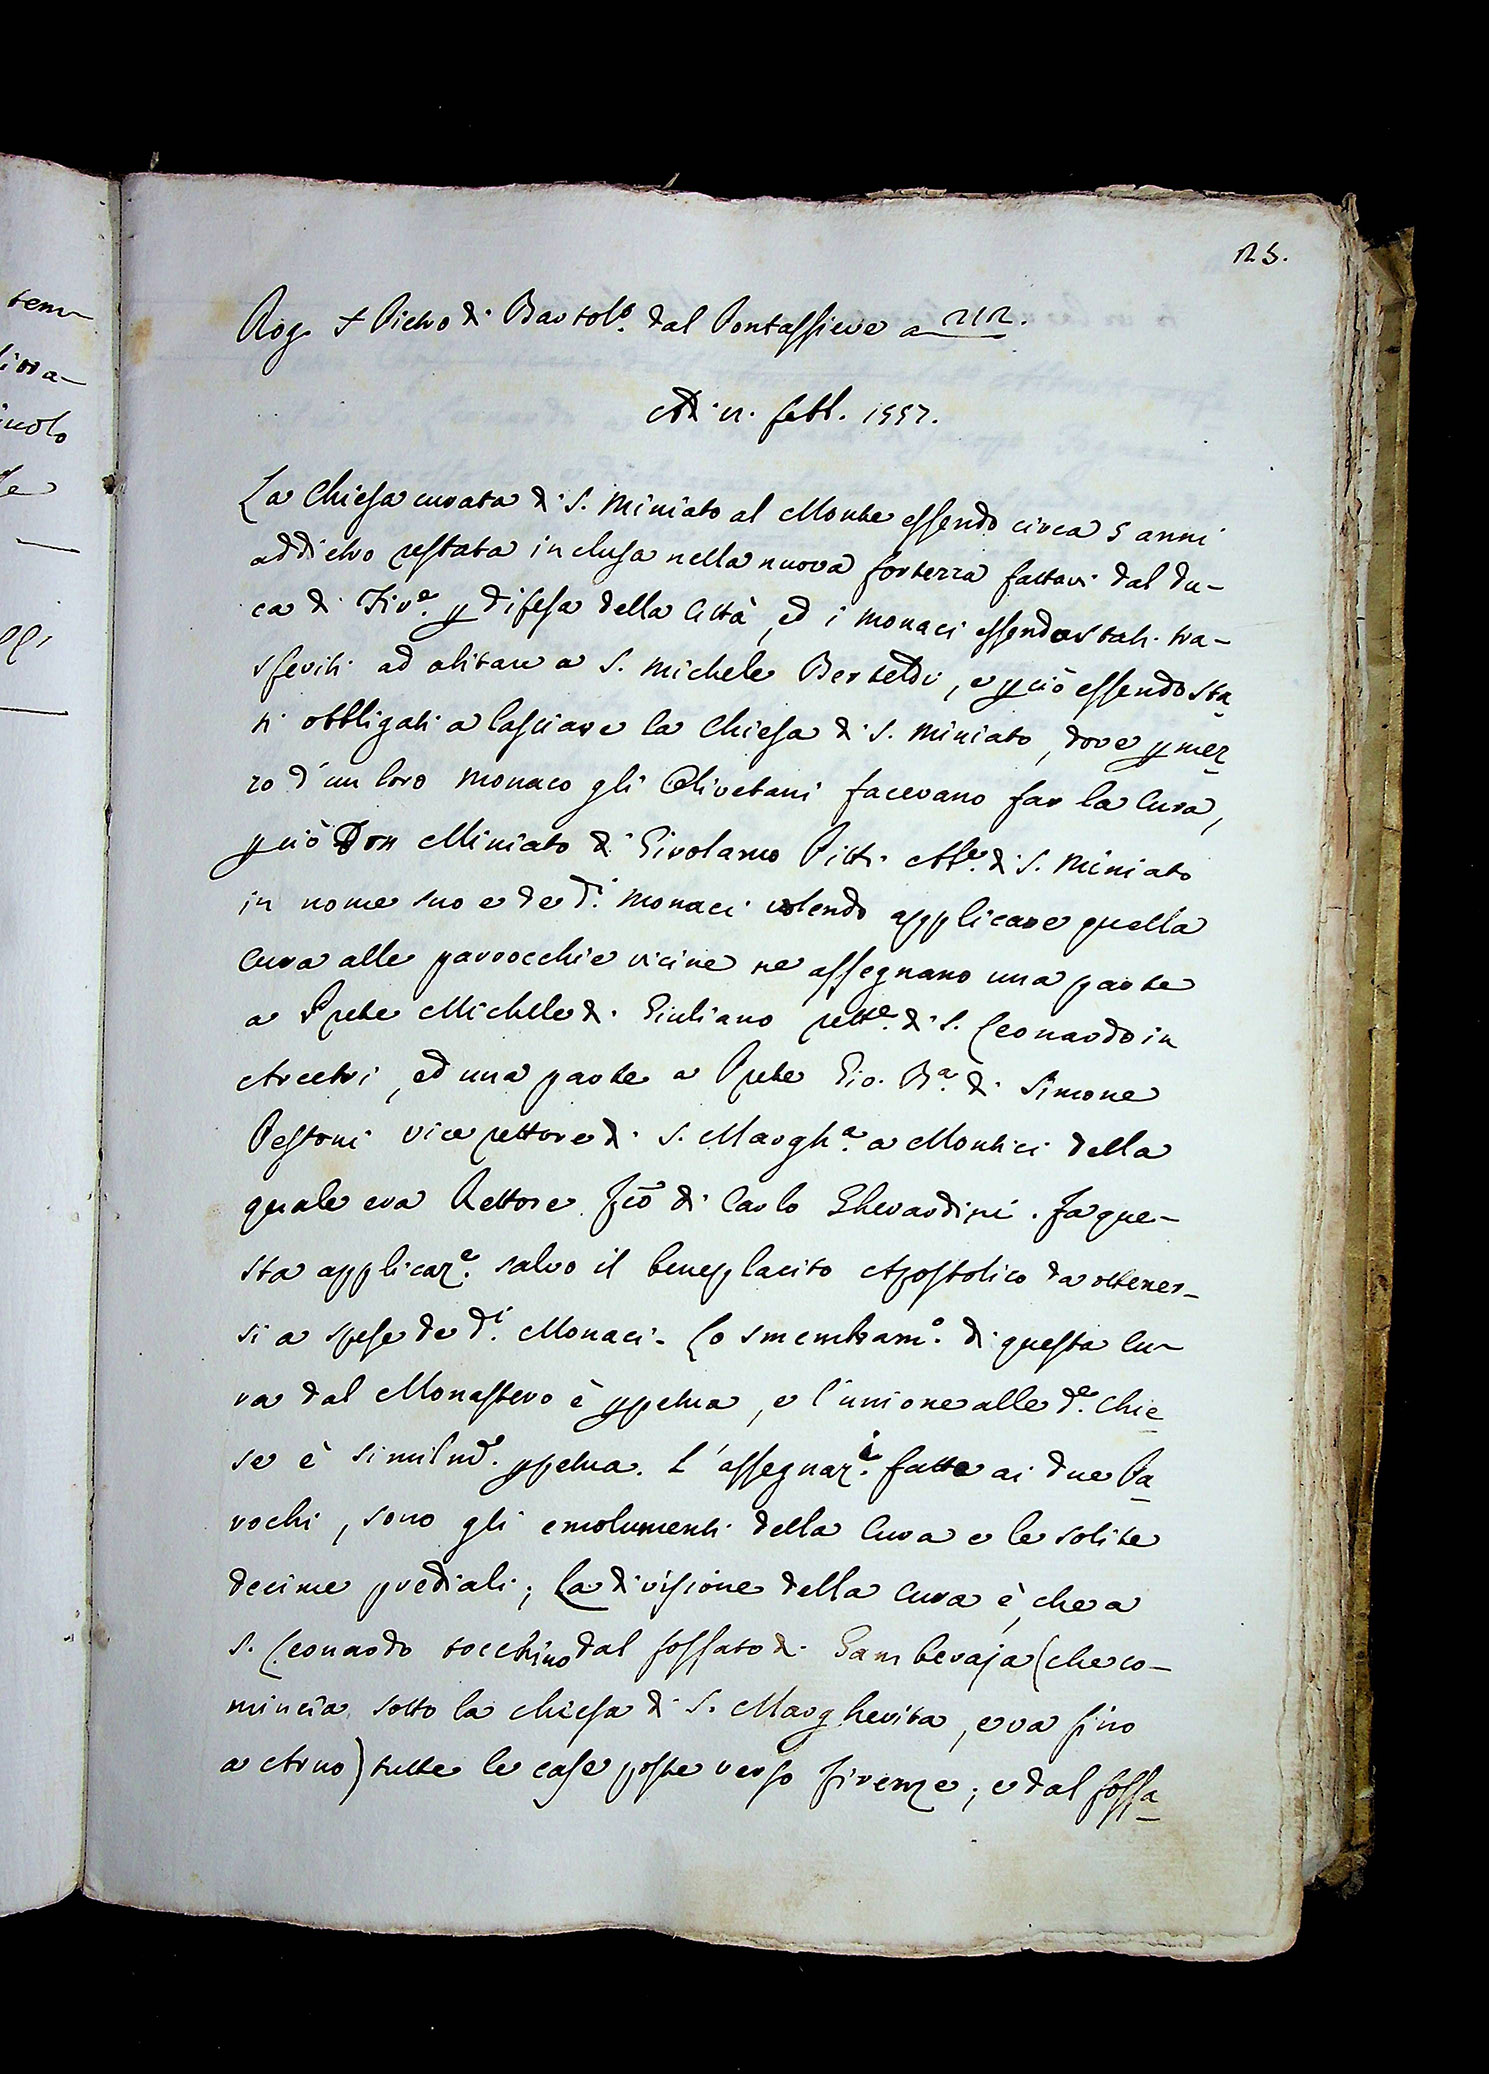 125.
Rog. S Pietro di Bartol.o dal Pontassieve a 212.
Adi 12. febb. 1557.
La Chiesa curata di S. Miniato al Monte essendo circa 5 anni
addietro restata inclusa nella nuova fortezza fattavi dal Du-
ca di Fir.e p difesa della Città, ed i Monaci essendo stati tra-
sferiti ad abitare a S. Michele Berteldi, e pciò essendo sta
ti obbligati a lasciare la Chiesa di S. Miniato, dove p mez
zo d'un loro Monaco gli Olivetani facevano far la Cura,
pciò Don Miniato di Girolamo Pitti Ab.e di S. Miniato
in nome suo e de d.i Monaci volendo applicare quella
Cura alle parrocchie vicine ne assegnano una parte
a Prete Michele di Giuliano rett.e di S. Leonardo in
Arcetri, ed una parte a Prete Gio. B.a di Simone
Pestoni vice rettore di S. Margh.a a Montici della
quale era Rettore fcō di Carlo Gherardini. Fa que-
sta applicaz.e salvo il beneplacito Apostolico da ottener-
si a spese de d.i Monaci. Lo smembram.o di questa Cu-
ra dal Monastero è ppetua, e l'unione alle d.e Chie
se è similm.e ppetua. L'assegnaz.i fatte ai due Pa
rochi, sono gli emolumenti della Cura e le solite
decime prediali; La divisione della Cura è, che a
S. Leonardo tocchino dal fossato di Gamberaja (che co-
mincia sotto la chiesa di S. Margherita, e va fino
a Arno) tutte le case poste verso Firenze; e dal fossa